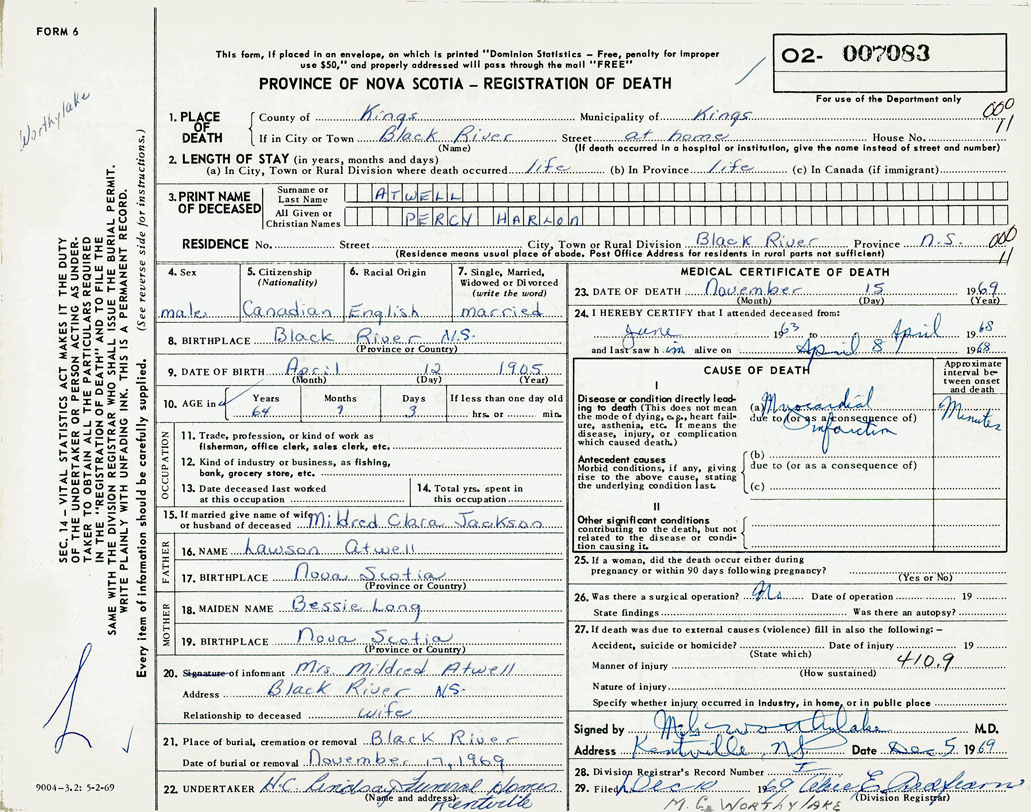 FORM 6
Worthylake
This form, if placed in an envelope, on which is printed "Dominion Statistics – Free, penalty for improper
use $50," and properly addressed will pass through the mail "FREE"
PROVINCE OF NOVA SCOTIA – REGISTRATION OF DEATH
02- 007083
For use of the Department only
000
11
1. PLACE OF DEATH
County of Kings Municipality of Kings
If in City or Town Black River Street at home House No.
(Name) (If death occurred in a hospital or institution, give the name instead of street and number)
2. LENGTH OF STAY (in years, months and days)
(a) In City, Town or Rural Division where death occurred life (b) In Province life (c) In Canada (if immigrant)
3. PRINT NAME OF DECEASED
Surname or Last Name ATWELL
All Given or Christian Names PERCY HARLON
RESIDENCE No. Street City, Town or Rural Division Black River Province N.S.
(Residence means usual place of abode. Post Office Address for residents in rural parts not sufficient)
000
11
4. Sex male
5. Citizenship (Nationality) Canadian
6. Racial Origin English
7. Single, Married, Widowed or Divorced (write the word) married
8. BIRTHPLACE Black River N.S.
(Province or Country)
9. DATE OF BIRTH April 12 1905
(Month) (Day) (Year)
10. AGE in Years 64 Months 7 Days 3 If less than one day old hrs. or min.
OCCUPATION
11. Trade, profession, or kind of work as
fisherman, office clerk, sales clerk, etc.
12. Kind of industry or business, as fishing,
bank, grocery store, etc.
13. Date deceased last worked
at this occupation
14. Total yrs. spent in
this occupation
15. If married give name of wife
or husband of deceased Mildred Clara Jackson
FATHER
16. NAME Lawson Atwell
17. BIRTHPLACE Nova Scotia
(Province or Country)
MOTHER
18. MAIDEN NAME Bessie Long
19. BIRTHPLACE Nova Scotia
(Province or Country)
20. Signature of informant Mrs. Mildred Atwell
Address Black River N.S.
Relationship to deceased wife
21. Place of burial, cremation or removal Black River
Date of burial or removal November 17, 1969
22. UNDERTAKER H.C. Lindsay Funeral Homes
(Name and address) Kentville
MEDICAL CERTIFICATE OF DEATH
23. DATE OF DEATH November 15 1969
(Month) (Day) (Year)
24. I HEREBY CERTIFY that I attended deceased from:
June 1963 to April 1968
and last saw him alive on April 8 1968
CAUSE OF DEATH
Approximate interval between onset and death
I
Disease or condition directly leading to death (This does not mean the mode of dying, e.g., heart failure, asthenia, etc. It means the disease, injury, or complication which caused death.)
(a) Myocardial
due to (or as a consequence of)
infarction
Minutes
Antecedent causes
Morbid conditions, if any, giving rise to the above cause, stating the underlying condition last.
(b)
due to (or as a consequence of)
(c)
II
Other significant conditions
contributing to the death, but not related to the disease or condition causing it.
25. If a woman, did the death occur either during
pregnancy or within 90 days following pregnancy?
(Yes or No)
26. Was there a surgical operation? No Date of operation 19
State findings Was there an autopsy?
27. If death was due to external causes (violence) fill in also the following: –
Accident, suicide or homicide? Date of injury 19
(State which)
Manner of injury 410.9
(How sustained)
Nature of injury
Specify whether injury occurred in industry, in home, or in public place
Signed by M G Worthylake M.D.
Address Kentville, NS Date Dec 5 1969
28. Division Registrar's Record Number
29. Filed Dec 10 1969
(Division Registrar)
M. G. WORTHYLAKE
SEC. 14 – VITAL STATISTICS ACT MAKES IT THE DUTY
OF THE UNDERTAKER OR PERSON ACTING AS UNDER-
TAKER TO OBTAIN ALL THE PARTICULARS REQUIRED
IN THE "REGISTRATION OF DEATH" AND TO FILE THE
SAME WITH THE DIVISION REGISTRAR WHO SHALL ISSUE THE BURIAL PERMIT.
WRITE PLAINLY WITH UNFADING INK. THIS IS A PERMANENT RECORD.
Every item of information should be carefully supplied. (See reverse side for instructions.)
9004-3.2: 5-2-69